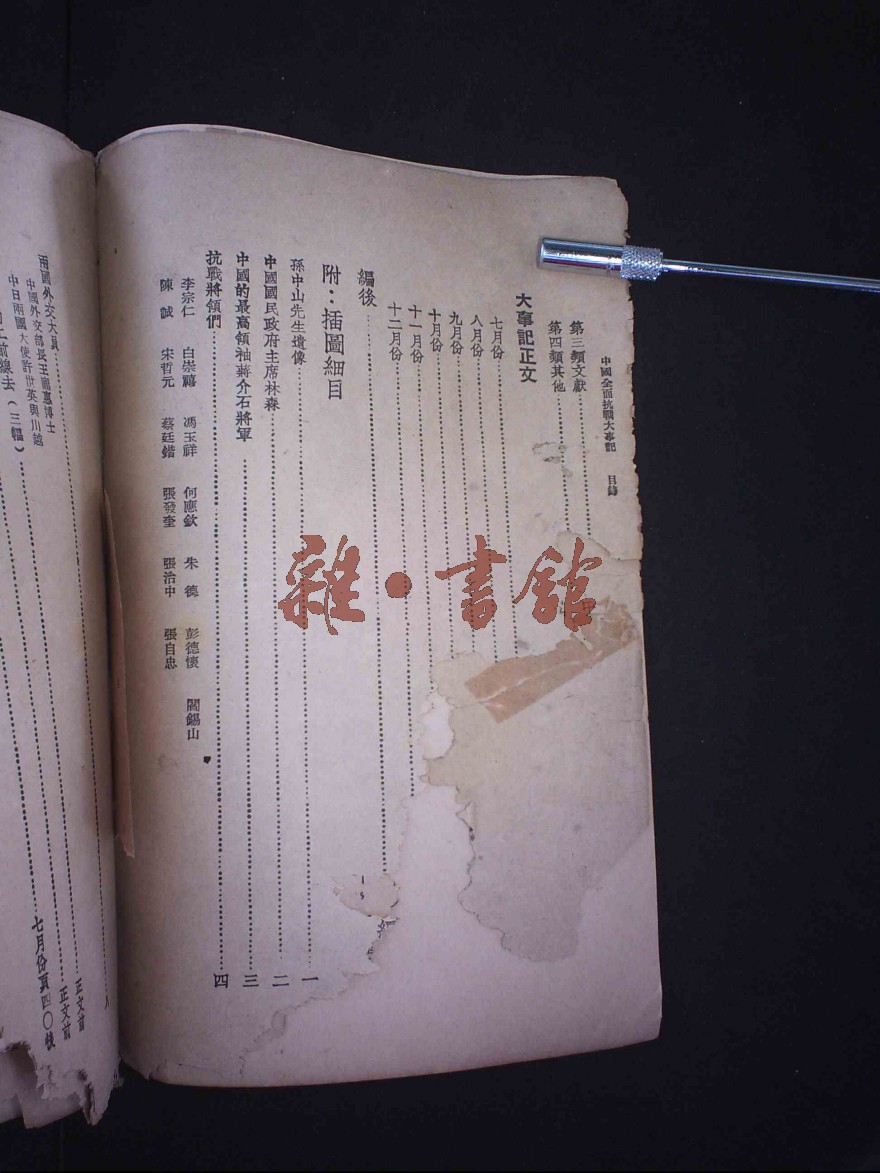 中國全面抗戰大事記　目錄
第三類文獻
第四類其他
大事記正文
七月份
八月份
九月份
十月份
十一月份
十二月份
編後
附：插圖細目
孫中山先生遺像……一
中國國民政府主席林森……二
中國的最高領袖蔣介石將軍……三
抗戰將領們……四
李宗仁　白崇禧　馮玉祥　何應欽　朱德　彭德懷　閻錫山
陳誠　宋哲元　蔡廷鍇　張發奎　張治中　張自忠
兩國外交大員……正文前
中國外交部長王寵惠博士
中日兩國大使許世英與川越
前線去（三幅）……七月份頁四〇後
雜·書館